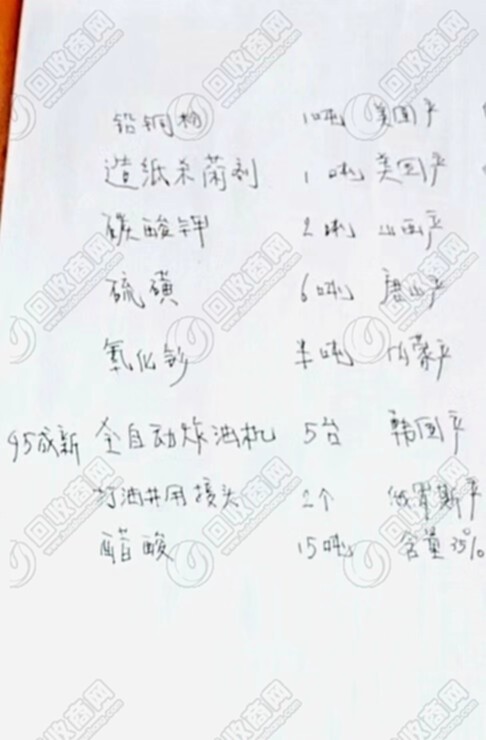 铅铜粉 1吨 美国产
造纸杀菌剂 1吨 美国产
碳酸钾 2吨 山西产
硫磺 6吨 唐山产
氧化 半吨 内蒙产
95成新 全自动炸油机 5台 韩国产
打油井用接头 2个 俄罗斯产
醋酸 15吨 含量35%
回收商网